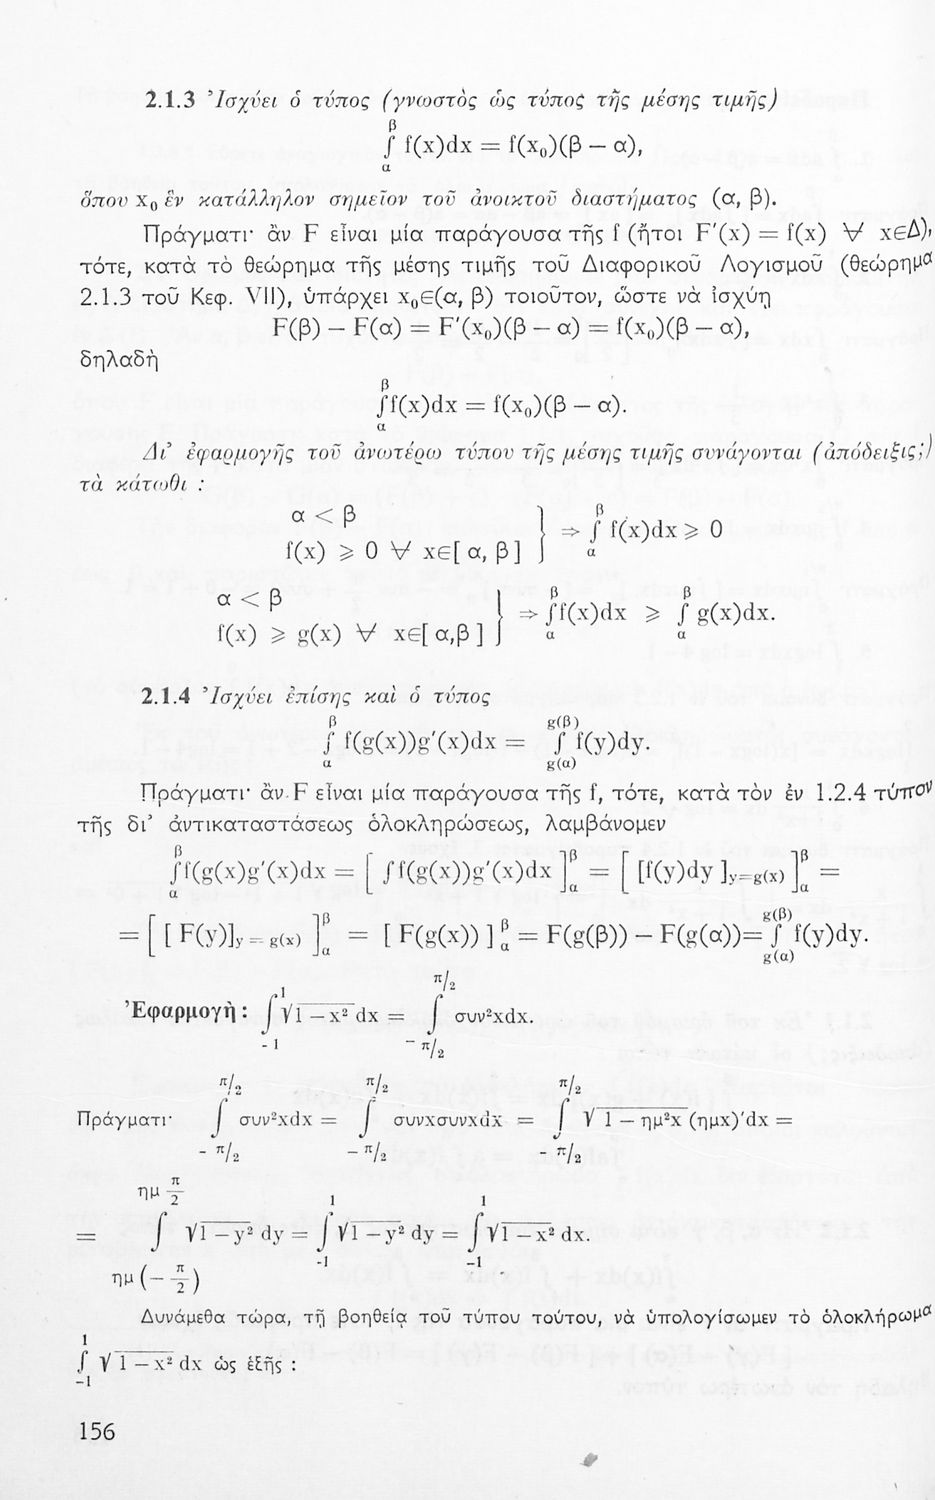 2.1.3 Ἰσχύει ὁ τύπος (γνωστὸς ὡς τύπος τῆς μέσης τιμῆς)
∫_α^β f(x)dx = f(x₀)(β – α),
ὅπου x₀ ἓν κατάλληλον σημεῖον τοῦ ἀνοικτοῦ διαστήματος (α, β).
Πράγματι· ἂν F εἶναι μία παράγουσα τῆς f (ἤτοι F′(x) = f(x) ∀ x∈Δ),
τότε, κατὰ τὸ θεώρημα τῆς μέσης τιμῆς τοῦ Διαφορικοῦ Λογισμοῦ (θεώρημα
2.1.3 τοῦ Κεφ. VII), ὑπάρχει x₀∈(α, β) τοιοῦτον, ὥστε νὰ ἰσχύῃ
F(β) – F(α) = F′(x₀)(β – α) = f(x₀)(β – α),
δηλαδὴ
∫_α^β f(x)dx = f(x₀)(β – α).
Δι’ ἐφαρμογῆς τοῦ ἀνωτέρω τύπου τῆς μέσης τιμῆς συνάγονται (ἀπόδειξις;)
τὰ κάτωθι :
α < β
f(x) ⩾ 0 ∀ x∈[α, β] } ⇒ ∫_α^β f(x)dx ⩾ 0
α < β
f(x) ⩾ g(x) ∀ x∈[α,β] } ⇒ ∫_α^β f(x)dx ⩾ ∫_α^β g(x)dx.
2.1.4 Ἰσχύει ἐπίσης καὶ ὁ τύπος
∫_α^β f(g(x))g′(x)dx = ∫_{g(α)}^{g(β)} f(y)dy.
Πράγματι· ἂν F εἶναι μία παράγουσα τῆς f, τότε, κατὰ τὸν ἐν 1.2.4 τύπον
τῆς δι’ ἀντικαταστάσεως ὁλοκληρώσεως, λαμβάνομεν
∫_α^β f(g(x)g′(x)dx = [ ∫f(g(x))g′(x)dx ]_α^β = [ [f(y)dy]_{y=g(x)} ]_α^β =
= [ [ F(y)]_{y = g(x)} ]_α^β = [ F(g(x)) ]_α^β = F(g(β)) – F(g(α))= ∫_{g(α)}^{g(β)} f(y)dy.
Ἐφαρμογὴ: ∫_{-1}^{1} √(1 – x²) dx = ∫_{-π/2}^{π/2} συν²xdx.
Πράγματι· ∫_{-π/2}^{π/2} συν²xdx = ∫_{-π/2}^{π/2} συνxσυνxdx = ∫_{-π/2}^{π/2} √(1 – ημ²x) (ημx)′dx =
= ∫_{ημ(-π/2)}^{ημ π/2} √(1 – y²) dy = ∫_{-1}^{1} √(1 – y²) dy = ∫_{-1}^{1} √(1 – x²) dx.
Δυνάμεθα τώρα, τῇ βοηθείᾳ τοῦ τύπου τούτου, νὰ ὑπολογίσωμεν τὸ ὁλοκλήρωμα
∫_{-1}^{1} √(1 – x²) dx ὡς ἑξῆς :
156